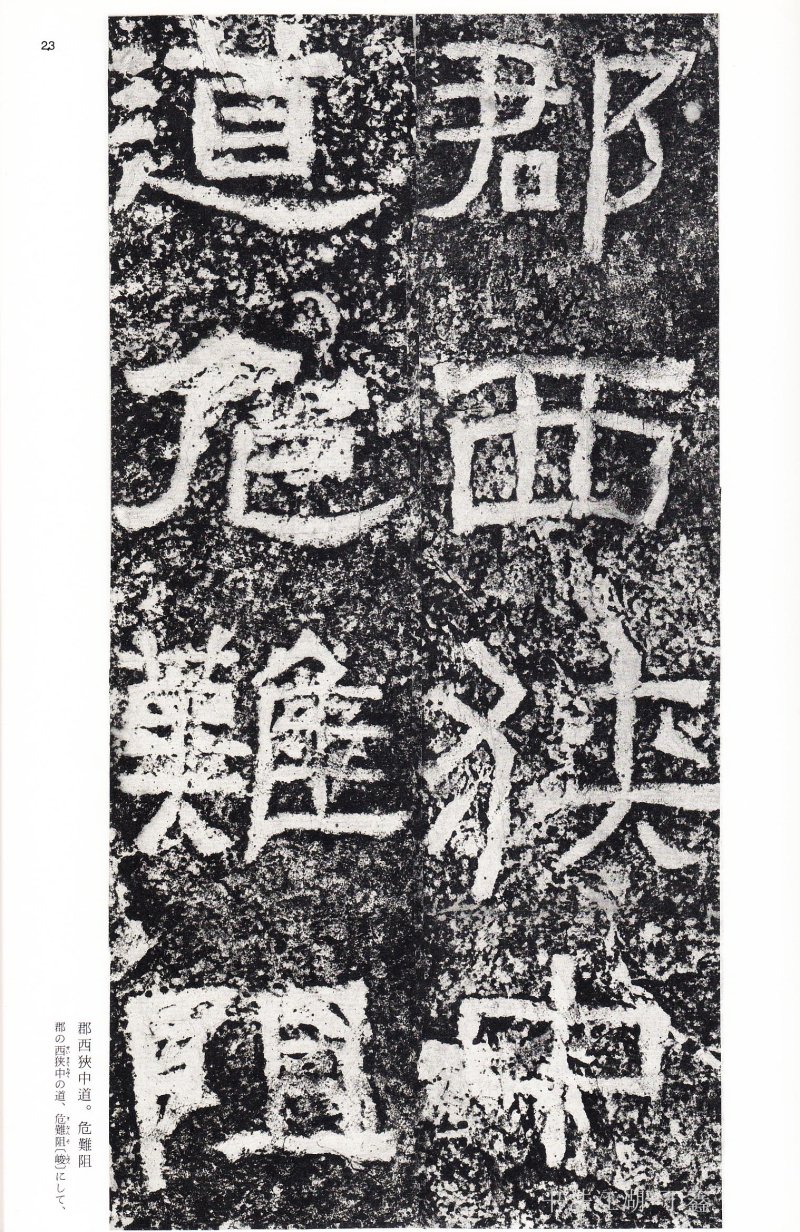 23
郡西狹中
道危難阻
郡西狹中道。危難阻
郡の西狭中の道、危難阻〔峻〕にして、